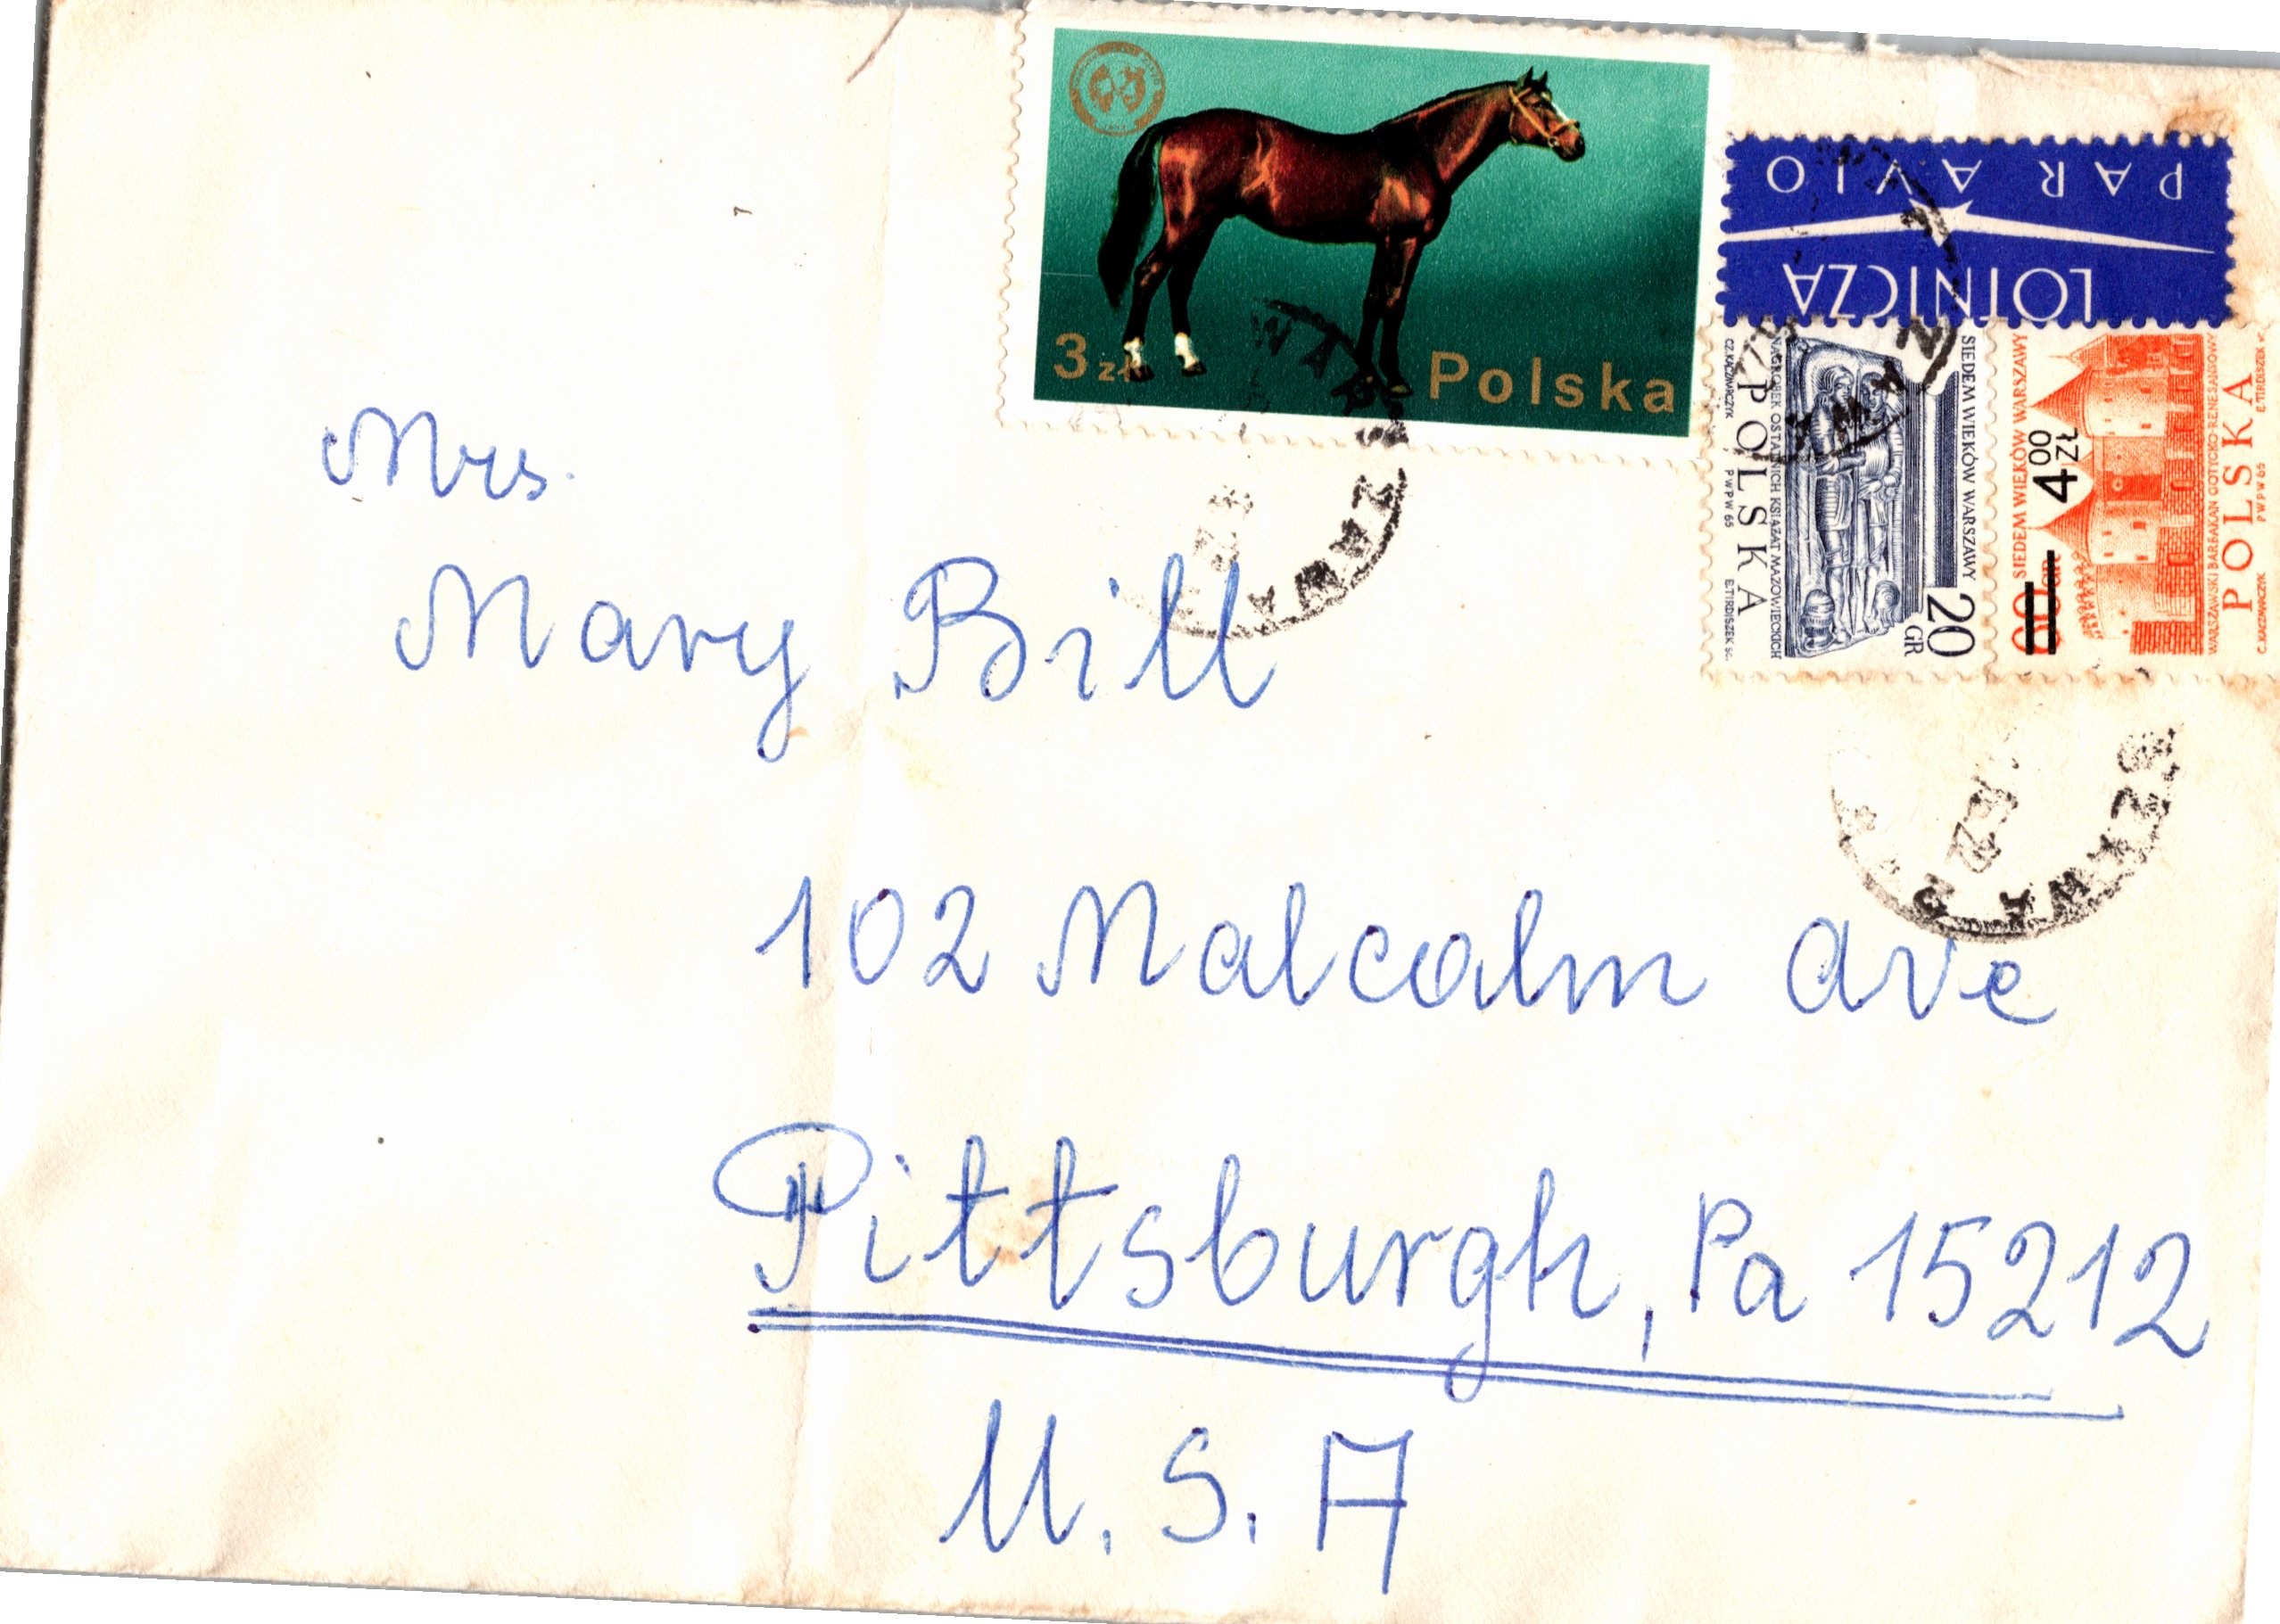 3 zł Polska
PAR AVIO
LOTNICZA
SIEDEM WIEKÓW WARSZAWY
20 GR
NAGROBEK OSTATNICH KSIĄŻĄT MAZOWIECKICH
POLSKA
CZ. KACZMARCZYK PWPW 65 E. TIRDISZEK sc.
SIEDEM WIEKÓW WARSZAWY
4 00 ZŁ
60 GR
WARSZAWSKI BARBAKAN GOTYCKO-RENESANSOWY
POLSKA
C. KACZMARCZYK PWPW 65 E. TIRDISZEK sc.
Mrs.
Mary Bill
102 Malcolm Ave
Pittsburgh, Pa 15212
U. S. A